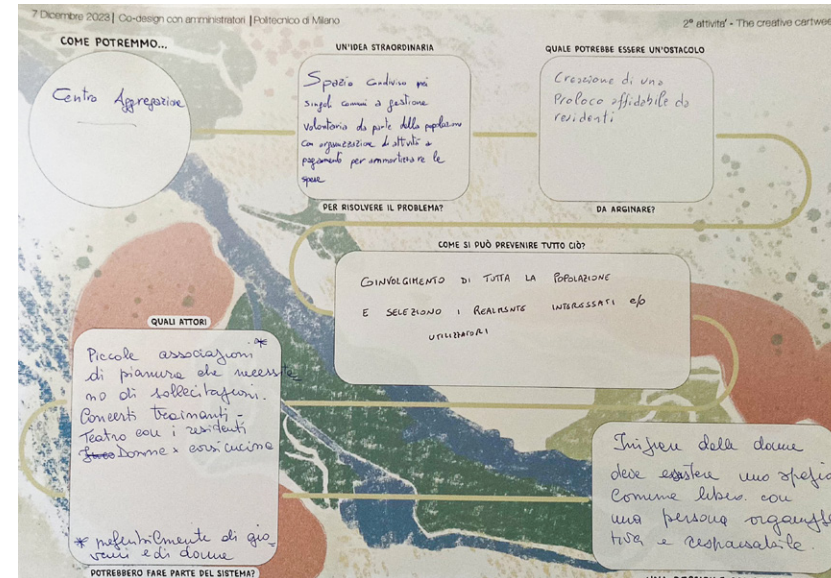 7 Dicembre 2023 | Co-design con amministratori | Politecnico di Milano
2° attivita' - The creative cartwee
COME POTREMMO...
Centro Aggregazione
UN'IDEA STRAORDINARIA
Spazio condiviso nei
singoli comuni a gestione
volontaria da parte della popolazione
con organizzazione di attività a
pagamento per ammortizzare le
spese
PER RISOLVERE IL PROBLEMA?
QUALE POTREBBE ESSERE UN'OSTACOLO
Creazione di una
Proloco affidabile da
residenti
DA ARGINARE?
COME SI PUÒ PREVENIRE TUTTO CIÒ?
COINVOLGIMENTO DI TUTTA LA POPOLAZIONE
E SELEZIONO I REALMENTE INTERESSATI e/o
UTILIZZATORI
QUALI ATTORI
Piccole associazioni *
di pianura che necessita
no di sollecitazioni.
Concerti trainanti -
Teatro con i residenti
Donne > corsi cucina
* preferibilmente di gio
vani e di donne
POTREBBERO FARE PARTE DEL SISTEMA?
delle donne
deve esistere uno spazio
comune libero con
una persona organizza
tiva e responsabile.